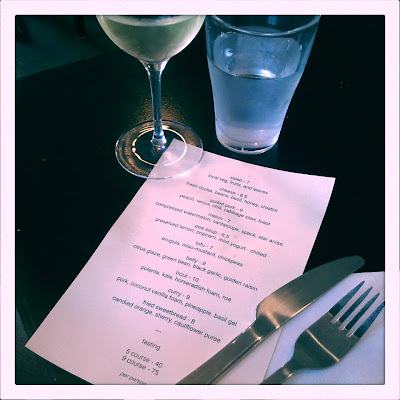 salad - 7
local veg, fruits, and leaves
cheese - 8.5
fresh ricotta, beans, basil, honey, crostini
pulled pork - 
peach, verjus, chili, cabbage slaw, toast
melon - 7
compressed watermelon, cantaloupe, speck, star anise
pea soup - 6.5
preserved lemon, popcorn, mint yogurt - chilled
tofu - 7
arugula, miso-mustard, chickpeas
belly - 9
citrus glaze, green bean, black garlic, golden raisin
trout - 10
polenta, kale, horseradish foam, roe
curry - 9
pork, coconut vanilla foam, pineapple, basil gel
fried sweetbread - 8
candied orange, sherry, cauliflower puree
---
tasting
5 course - 40
9 course - 75
per person